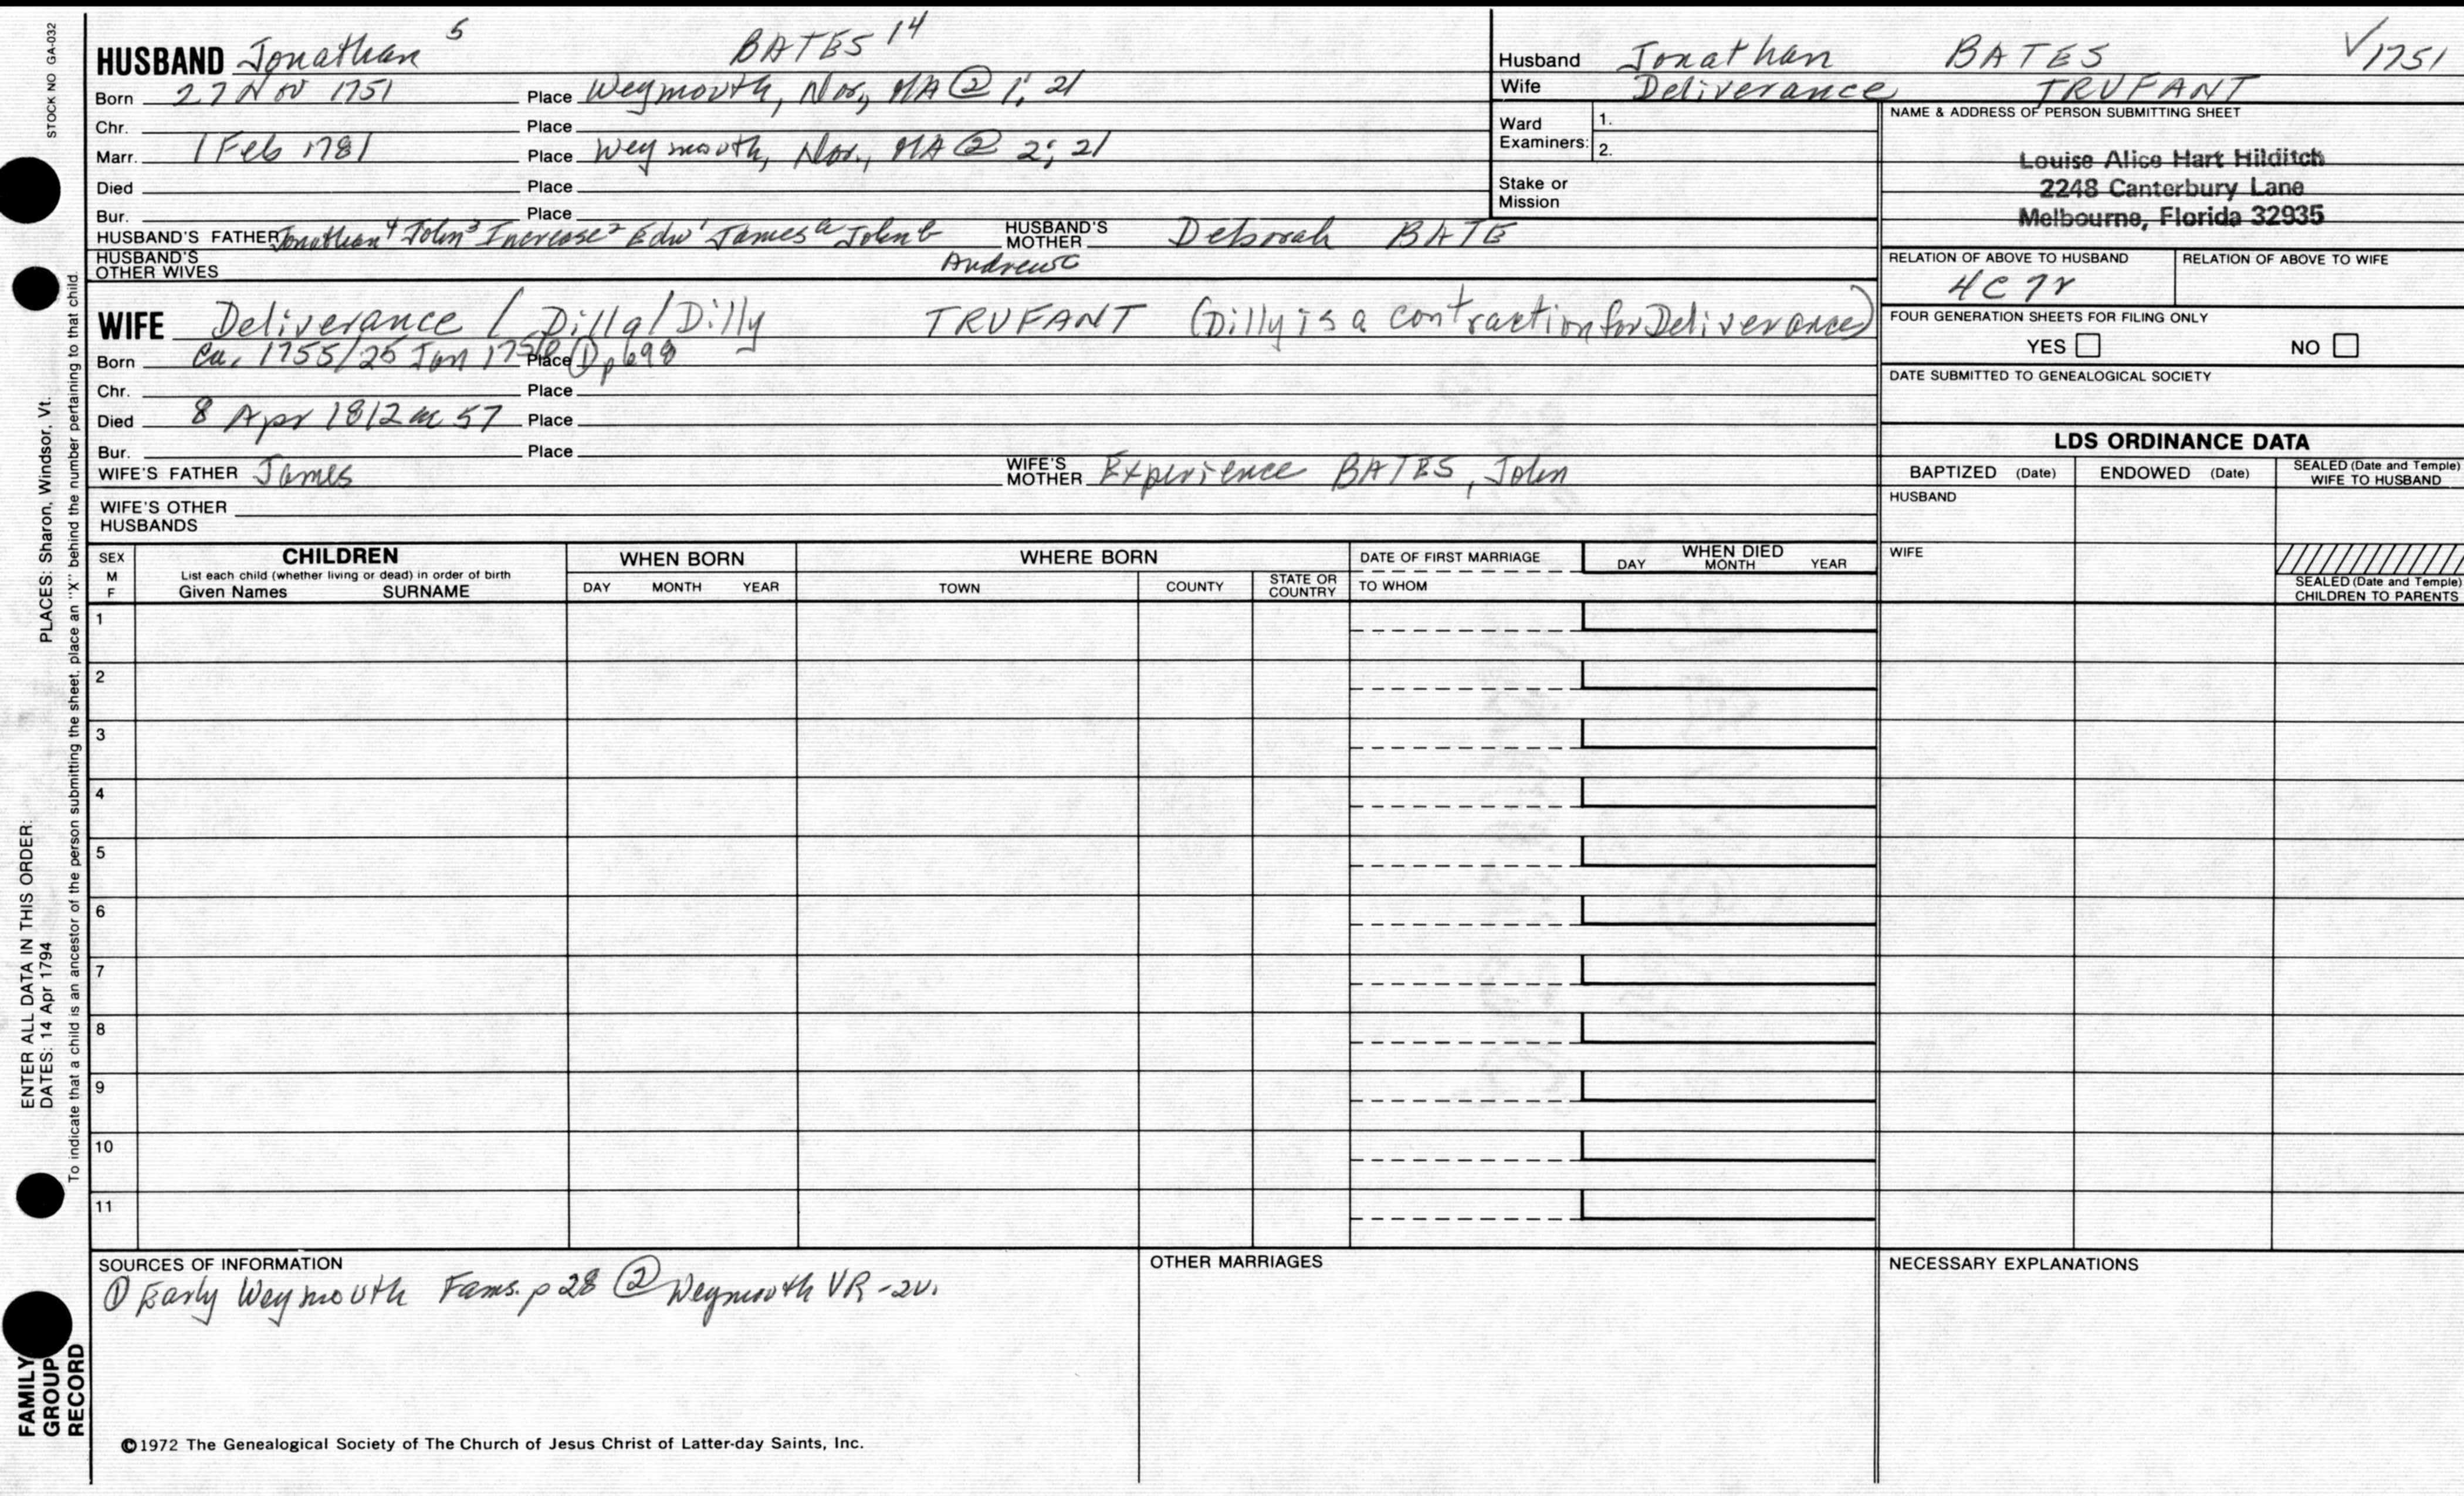 STOCK NO GA-032
HUSBAND Jonathan 5 BATES 14
Born 27 Nov 1751 Place Weymouth, Nor, MA @ 1; 21
Chr. Place
Marr. 1 Feb 1781 Place Weymouth, Nor., MA @ 2; 21
Died Place
Bur. Place
HUSBAND'S FATHER Jonathan4 John3 Increase2 Edw1 James a John b HUSBAND'S MOTHER Deborah BATE
HUSBAND'S OTHER WIVES Andrew c
Husband Jonathan BATES √1751
Wife Deliverance TRUFANT
Ward 1.
Examiners: 2.
Stake or Mission
NAME & ADDRESS OF PERSON SUBMITTING SHEET
Louise Alice Hart Hilditch
2248 Canterbury Lane
Melbourne, Florida 32935
RELATION OF ABOVE TO HUSBAND RELATION OF ABOVE TO WIFE
4C7r
FOUR GENERATION SHEETS FOR FILING ONLY
YES NO
DATE SUBMITTED TO GENEALOGICAL SOCIETY
WIFE Deliverance / Dilla/Dilly TRUFANT (Dilly is a contraction for Deliverance)
Born Ca. 1755/25 Jan Place ① p698
Chr. Place
Died 8 Apr 1812 ae 57 Place
Bur. Place
WIFE'S FATHER James WIFE'S MOTHER Experience BATES, John
WIFE'S OTHER HUSBANDS
LDS ORDINANCE DATA
BAPTIZED (Date) ENDOWED (Date) SEALED (Date and Temple) WIFE TO HUSBAND
HUSBAND
WIFE
SEALED (Date and Temple) CHILDREN TO PARENTS
SEX M F CHILDREN WHEN BORN WHERE BORN DATE OF FIRST MARRIAGE WHEN DIED
List each child (whether living or dead) in order of birth
Given Names SURNAME DAY MONTH YEAR TOWN COUNTY STATE OR COUNTRY TO WHOM DAY MONTH YEAR
1
2
3
4
5
6
7
8
9
10
11
SOURCES OF INFORMATION OTHER MARRIAGES NECESSARY EXPLANATIONS
① Early Weymouth Fams. p 28 ② Weymouth VR -2v.
©1972 The Genealogical Society of The Church of Jesus Christ of Latter-day Saints, Inc.
ENTER ALL DATA IN THIS ORDER:
DATES: 14 Apr 1794 PLACES: Sharon, Windsor, Vt.
To indicate that a child is an ancestor of the person submitting the sheet, place an "X" behind the number pertaining to that child.
FAMILY
GROUP
RECORD